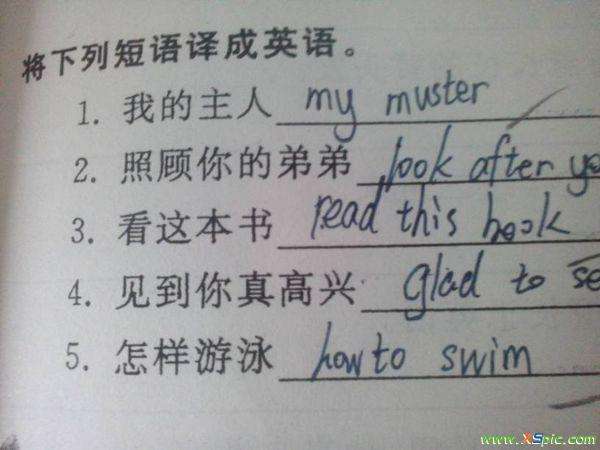 将下列短语译成英语。
1. 我的主人 my muster
2. 照顾你的弟弟 look after
3. 看这本书 read this book
4. 见到你真高兴 glad to
5. 怎样游泳 how to swim
www.XSpic.com